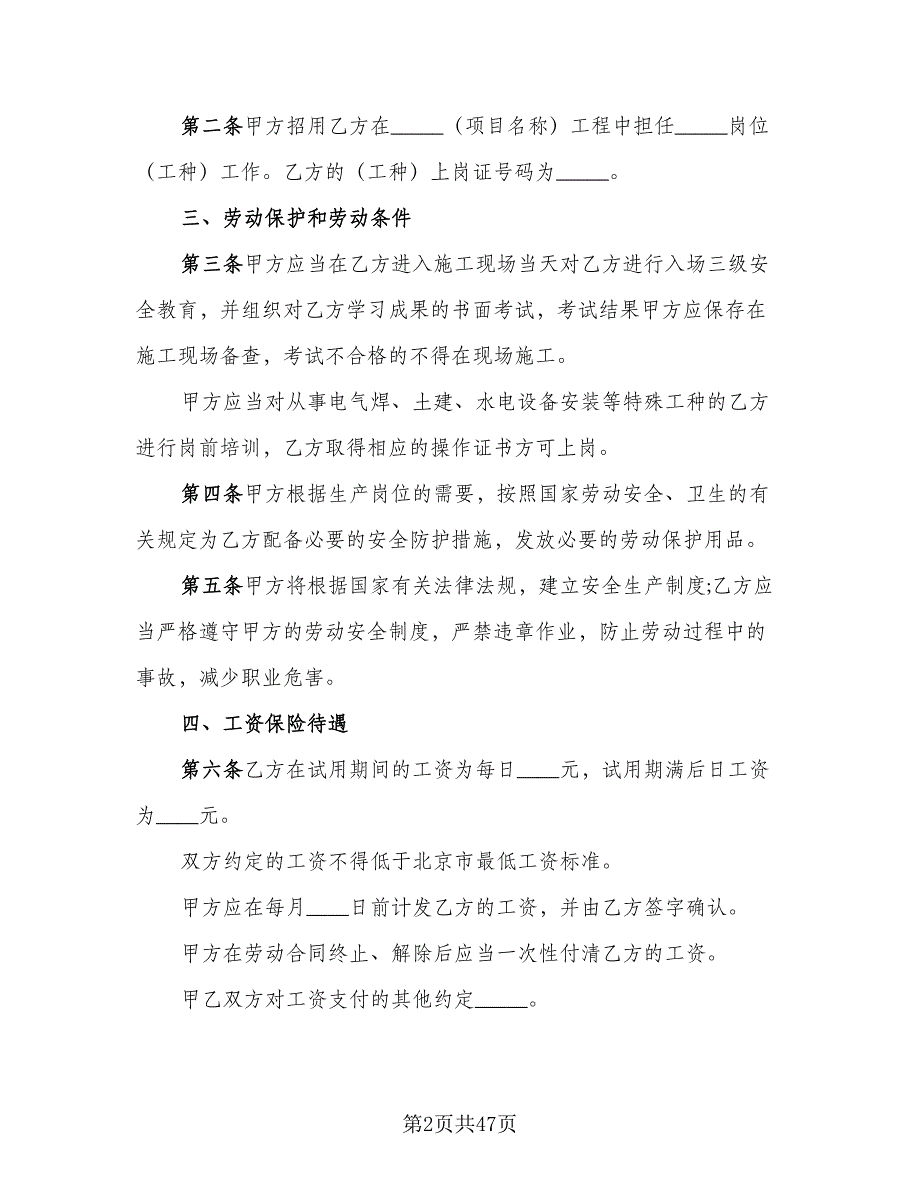 第二条甲方招用乙方在_____（项目名称）工程中担任_____岗位
（工种）工作。乙方的（工种）上岗证号码为_____。
三、劳动保护和劳动条件
第三条甲方应当在乙方进入施工现场当天对乙方进行入场三级安
全教育，并组织对乙方学习成果的书面考试，考试结果甲方应保存在
施工现场备查，考试不合格的不得在现场施工。
甲方应当对从事电气焊、土建、水电设备安装等特殊工种的乙方
进行岗前培训，乙方取得相应的操作证书方可上岗。
第四条甲方根据生产岗位的需要，按照国家劳动安全、卫生的有
关规定为乙方配备必要的安全防护措施，发放必要的劳动保护用品。
第五条甲方将根据国家有关法律法规，建立安全生产制度;乙方应
当严格遵守甲方的劳动安全制度，严禁违章作业，防止劳动过程中的
事故，减少职业危害。
四、工资保险待遇
第六条乙方在试用期间的工资为每日____元，试用期满后日工资
为____元。
双方约定的工资不得低于北京市最低工资标准。
甲方应在每月____日前计发乙方的工资，并由乙方签字确认。
甲方在劳动合同终止、解除后应当一次性付清乙方的工资。
甲乙双方对工资支付的其他约定_____。
第2页共47页